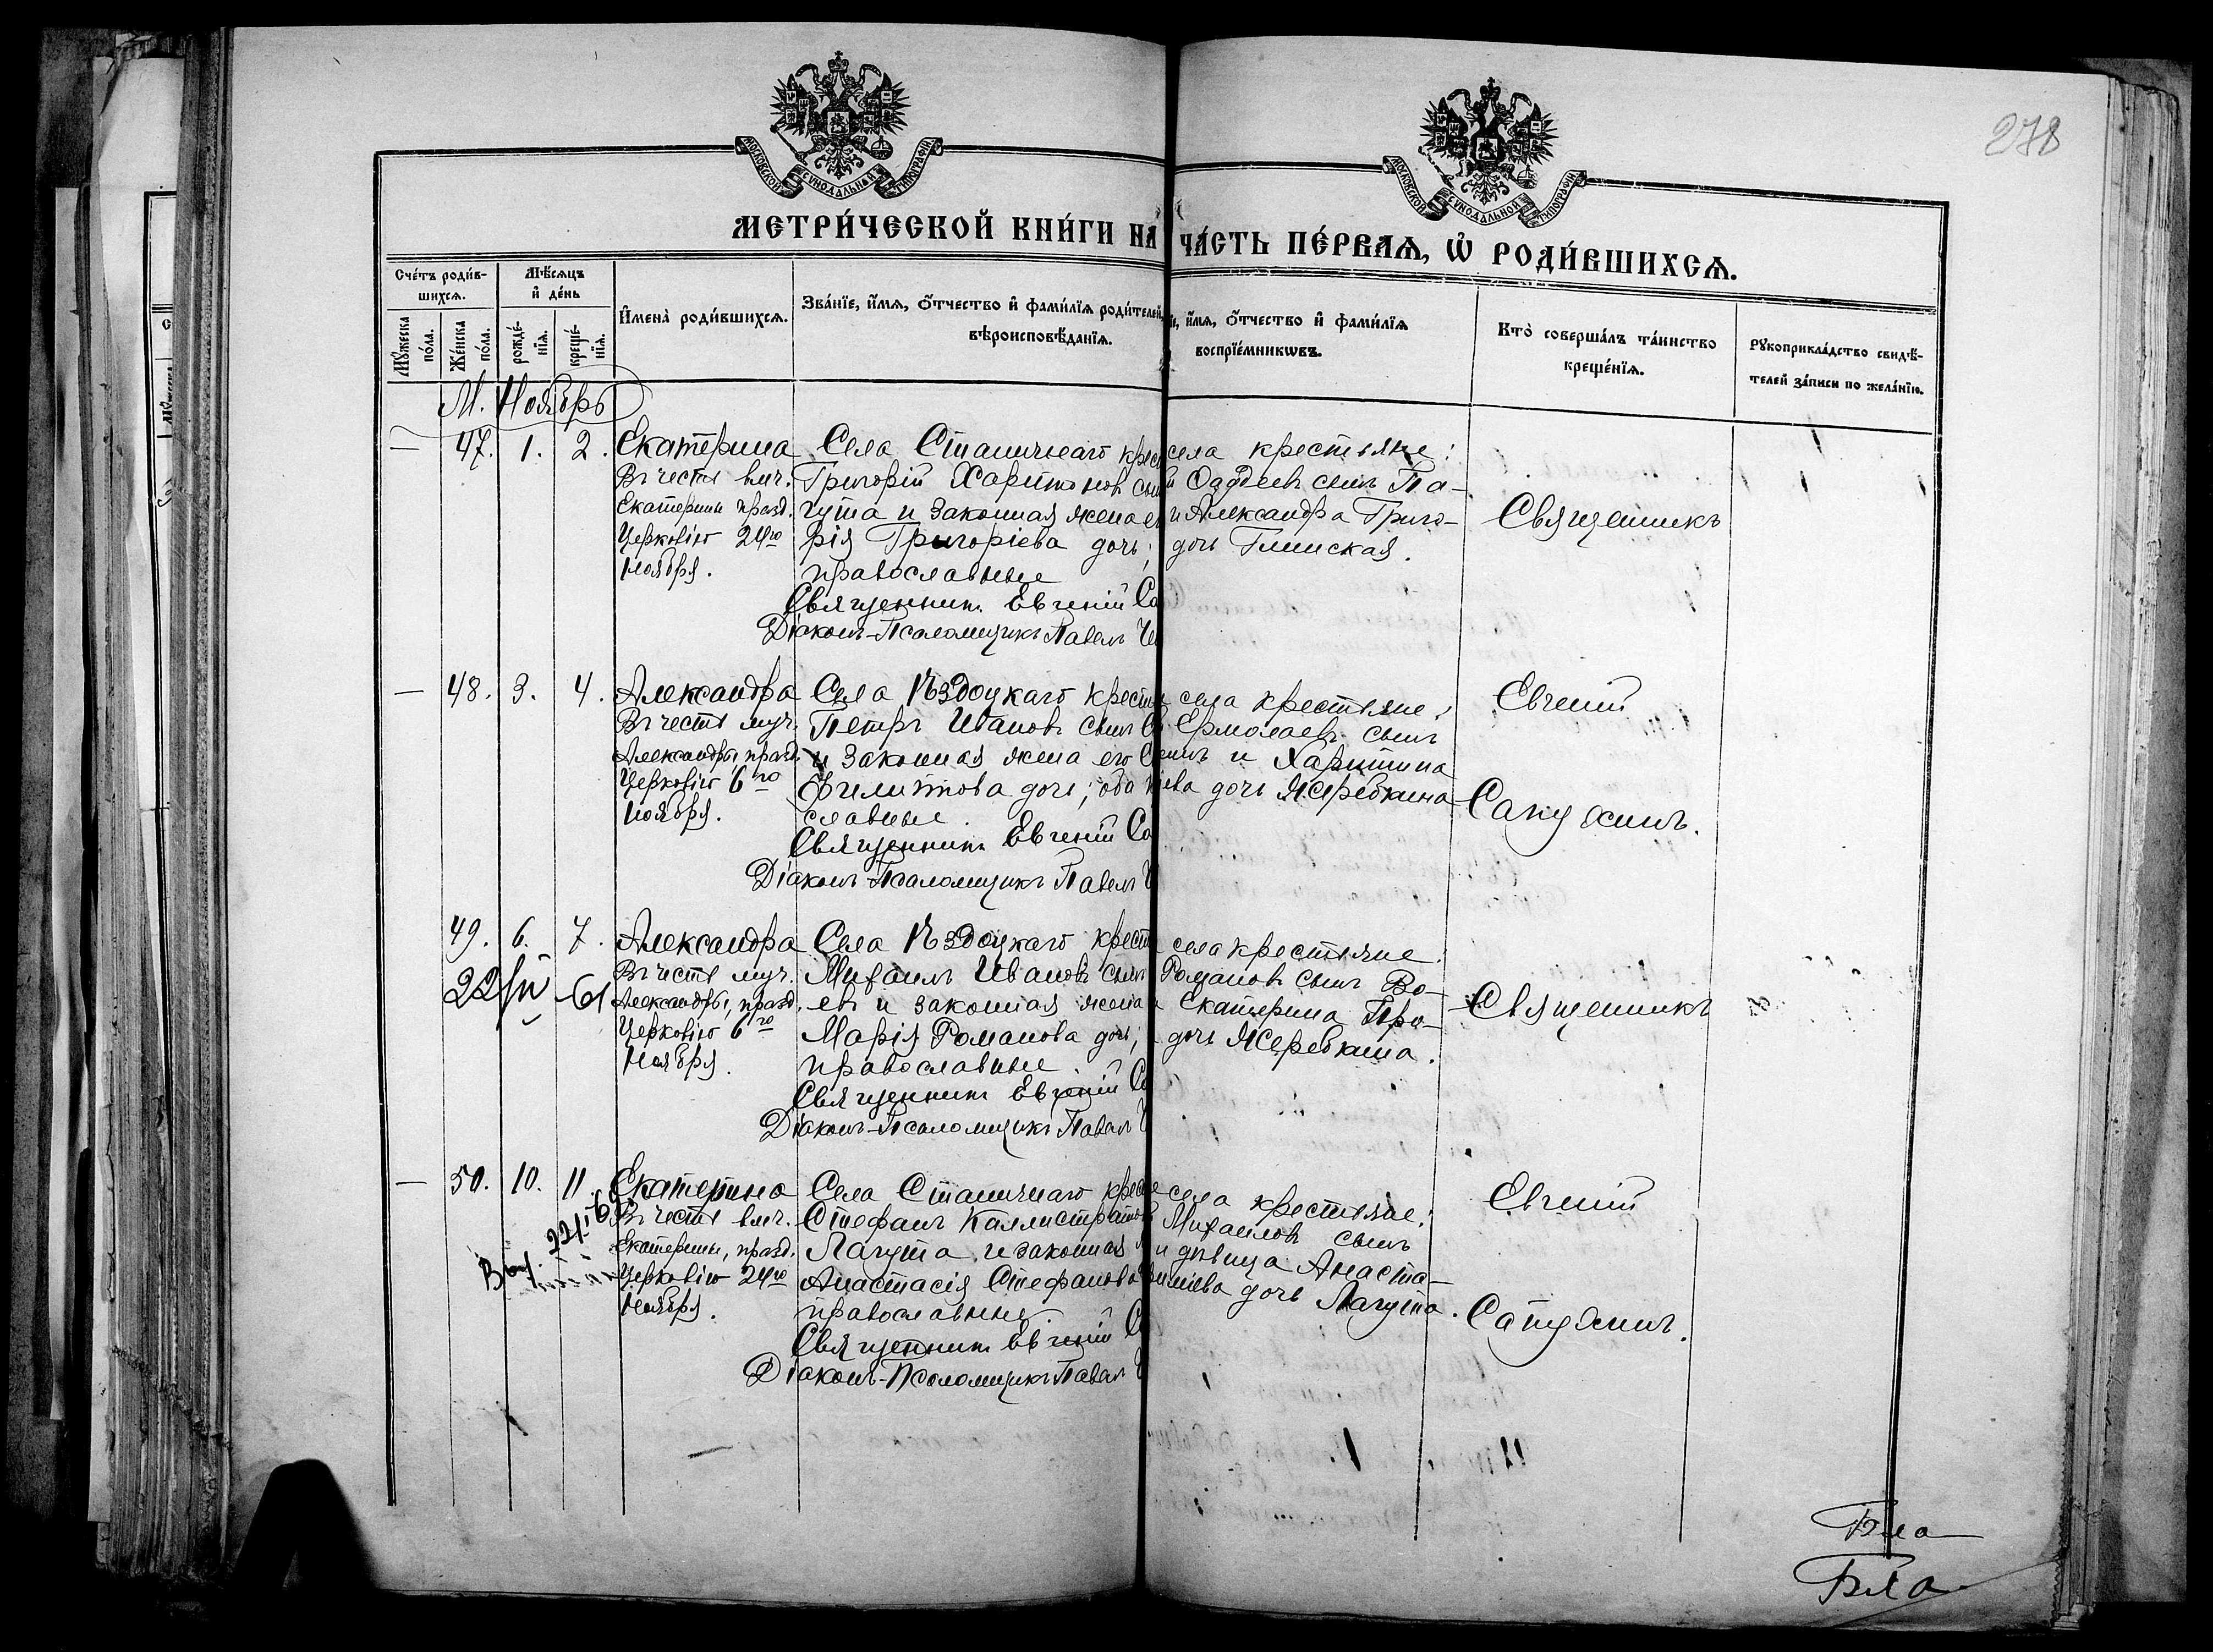 278
МОСКОВСКОЙ СѴНОДАЛЬНОЙ ТИПОГРАФІИ
МОСКОВСКОЙ СѴНОДАЛЬНОЙ ТИПОГРАФІИ
МЕТРИ́ЧЕСКОЙ КНИ́ГИ НА
ЧА́СТЬ ПЕ́РВАѦ, Ѡ҆ РОДИ́ВШИХСѦ.
Сче́тъ роди́в-
шихсѧ.
Мѣ́сѧцъ
и҆ де́нь
Мꙋ́жеска
по́ла.
Же́нска
по́ла.
рожде́-
нїѧ.
креще́-
нїѧ.
И҆мена̀ роди́вшихсѧ.
Зва́нїе, и҆́мѧ, ѻ҆́тчество и҆ фами́лїѧ роди́телей,
вѣроисповѣ́данїѧ.
е, и҆́мѧ, ѻ҆́тчество и҆ фами́лїѧ
воспрїе́мникѡвъ.
Кто̀ соверша́лъ та́инство
креще́нїѧ.
Рꙋкоприкла́дство свидѣ́-
телей за́писи по жела́нїю.
М. Ноябрь
— 47. 1. 2.
Екатерина
Въ честь вмч.
Екатерины празд.
Церковію 24го
Ноября.
Села Станичнаго крес
Григорій Харитоновъ сы
гута и законная жена е
рія Григоріева дочь;
православные
Священникъ Евгеній Са
Діаконъ-Псаломщикъ Павелъ
села крестьяне:
Фаддеевъ сынъ Ла-
и Александра Григо-
дочь Глинская.
Священникъ
— 48. 3. 4.
Александра
Въ честь муч.
Александры, празд.
Церковію 6го
Ноября.
Села Ѣздоцкаго крест
Петръ Ивановъ сынъ
и законная жена его
Филиппова дочь; оба
славные.
Священникъ Евгеній Са
Діаконъ-Псаломщикъ Павелъ
села крестьяне:
Ермолаевъ сынъ
и Харитина
ева дочь Жеребкина
Евгеній
Сапухинъ.
49. 6. 7.
Александра
Въ честь муч.
Александры, празд.
Церковію 6го
Ноября.
Села Ѣздоцкаго крест
Михаилъ Ивановъ сынъ
евъ и законная жена
Марія Романова дочь;
православные.
Священникъ Евгеній Са
Діаконъ-Псаломщикъ Павелъ
села крестьяне:
Романовъ сынъ Во-
Екатерина Тро-
дочь Жеребкина.
Священникъ
— 50. 10. 11
Екатерина
Въ честь вмч.
Екатерины, празд.
Церковію 24го
Ноября.
Села Станичнаго крес
Стефанъ Каллистратовъ
Лагута и законная
Анастасія Стефанова
православные.
Священникъ Евгеній С
Діаконъ-Псаломщикъ Павелъ
села крестьяне:
Михаиловъ сынъ
и дѣвица Анаста-
дочь Лагута.
Евгеній
Сапухинъ.
Бла
Бла